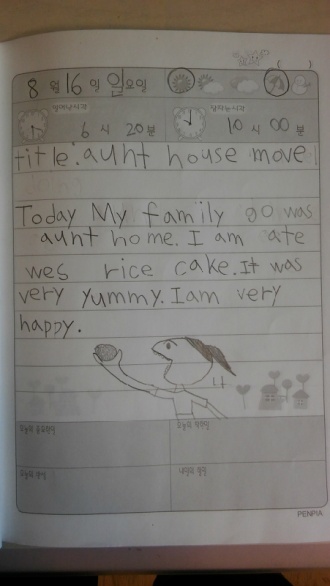 8월 16일 일요일
일어난시각
6시 20분
잠자는시각
10시 00분
title: aunt house move
Today My family go was
aunt home. I am ate
wes rice cake. It was
very yummy. I am very
happy.
나
오늘의 중요한일
오늘의 착한일
오늘의 반성
내일의 할일
PENPIA